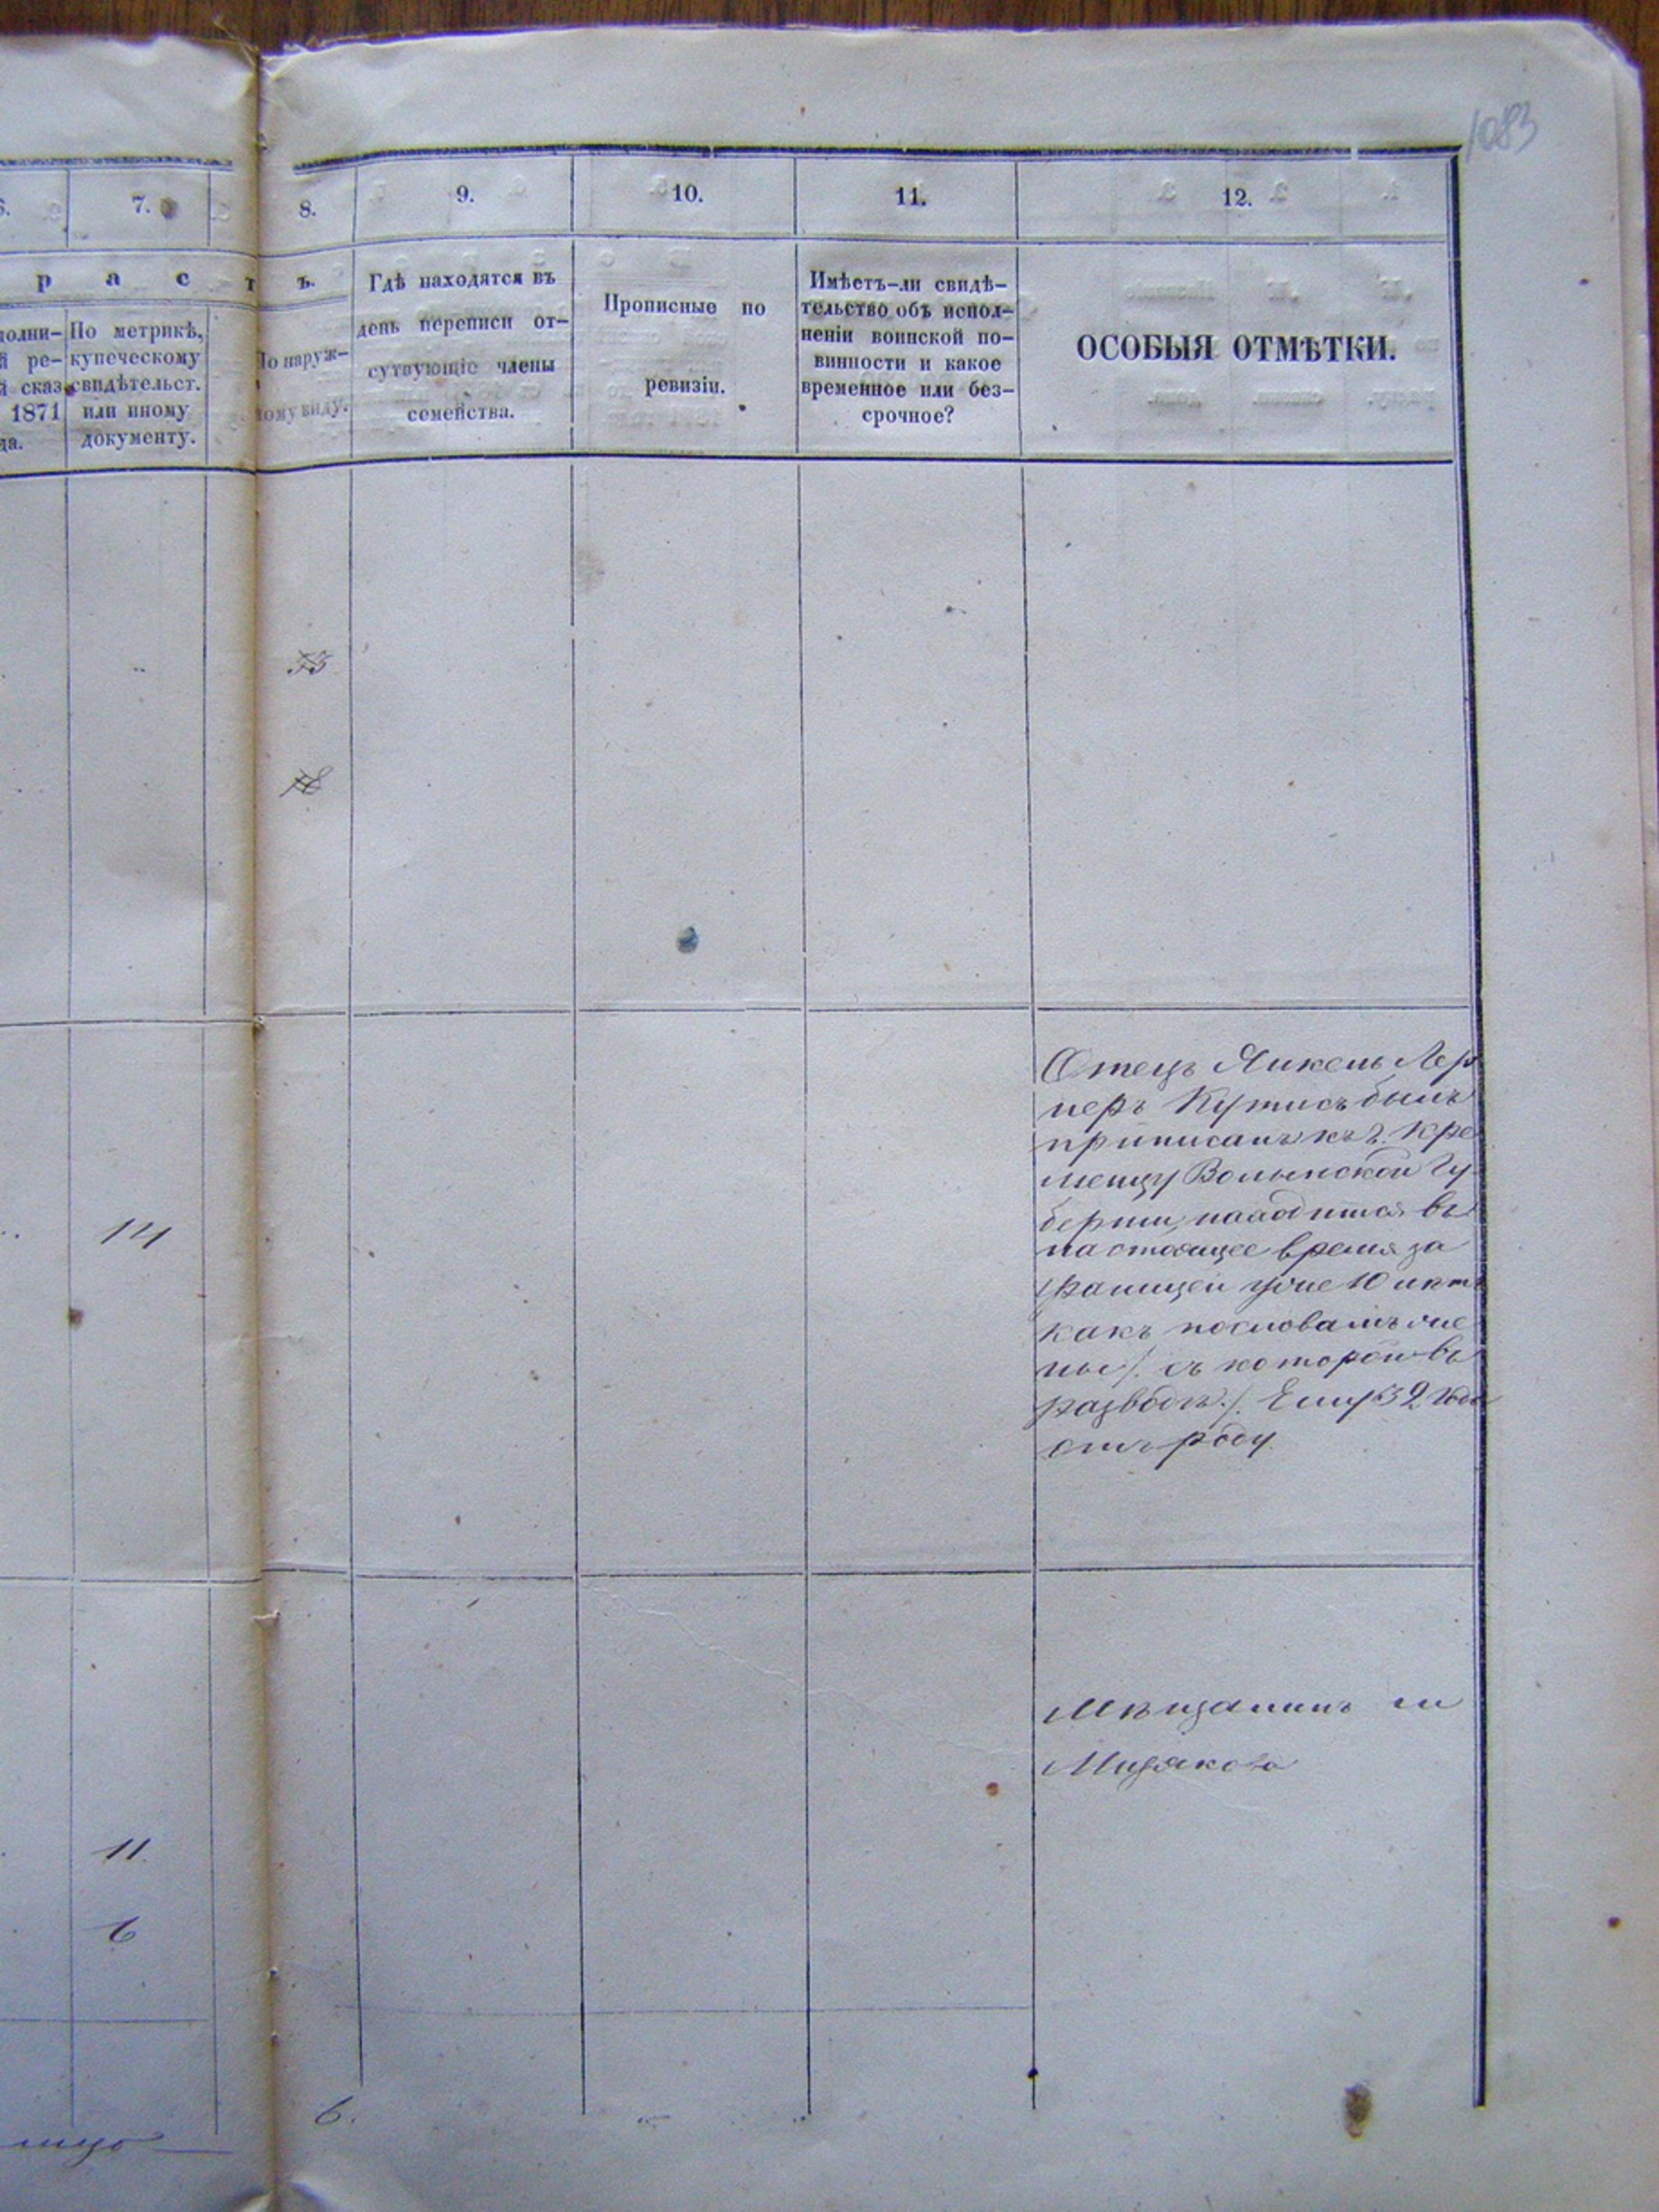 1083
6. 7. 8. 9. 10. 11. 12.
р а с т ъ.
полни-
й ре-
й сказ.
1871
да.
По метрикѣ,
купеческому
свидѣтельст.
или иному
документу.
По наруж-
ному виду.
Гдѣ находятся въ
день переписи от-
сутвующіе члены
семейства.
Прописные по
ревизіи.
Имѣетъ-ли свидѣ-
тельство объ испол-
неніи воинской по-
винности и какое
временное или без-
срочное?
ОСОБЫЯ ОТМѢТКИ.
Отецъ Янкель Лер
неръ Кутисъ былъ
приписанъ къ г. Кре
менцу Волынской Гу
берніи, находится въ
настоящее время за
границей уже 10 лѣтъ
какъ по словамъ же
ны /. съ которой въ
разводѣ ./. Ему 32 года
отъ роду.
14
Мѣщанинъ м
Мизякова
11
6
6.